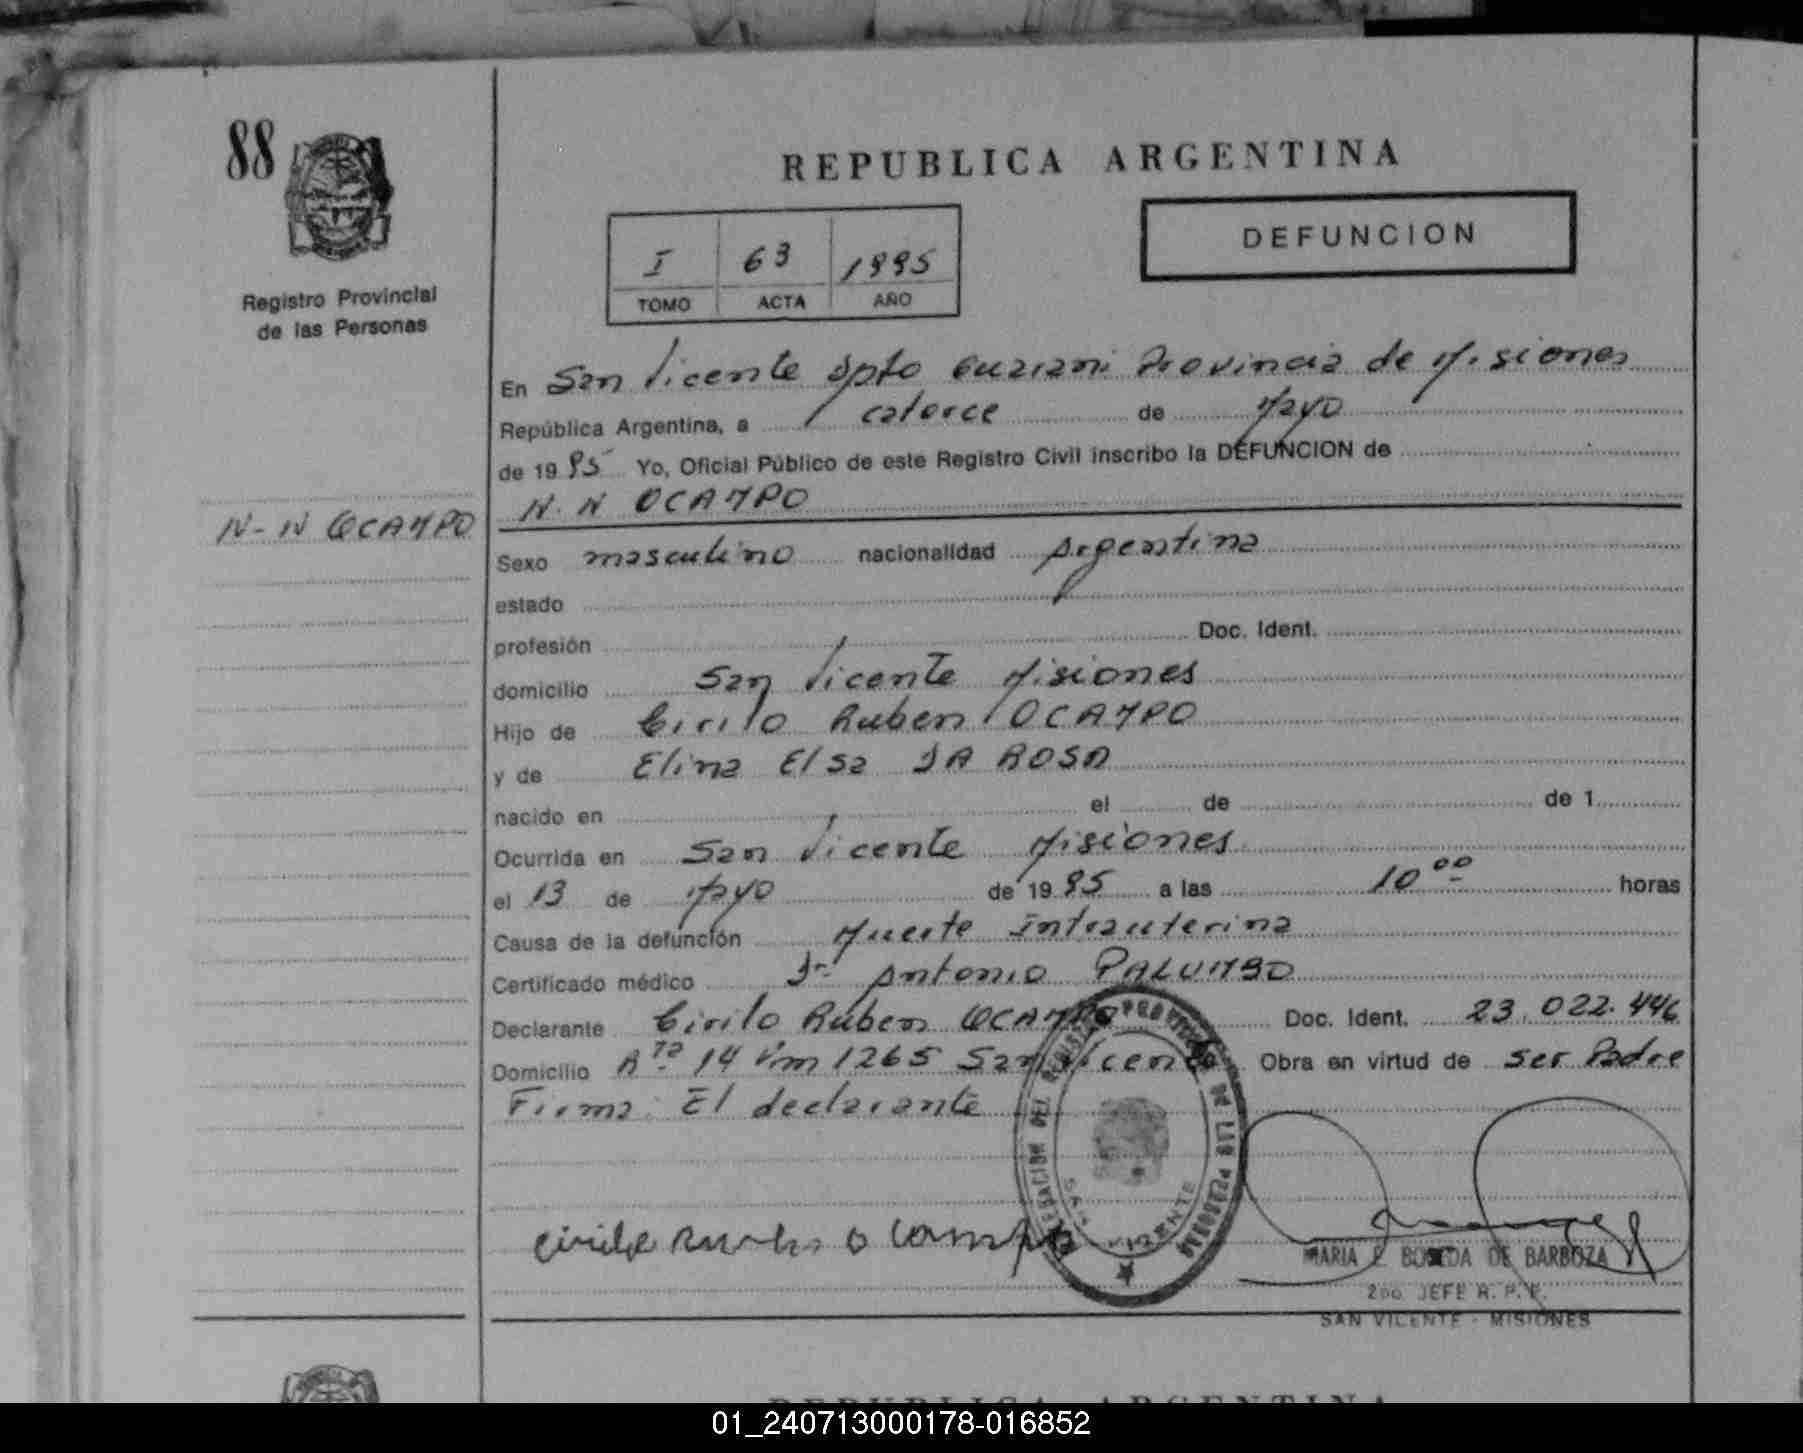 88
REPUBLICA ARGENTINA
DEFUNCION
I 63 1995
TOMO ACTA AÑO
Registro Provincial
de las Personas
En San Vicente Dpto Guarani Provincia de Misiones
República Argentina, a catorce de Mayo
de 19 95 Yo, Oficial Público de este Registro Civil inscribo la DEFUNCION de
N. N OCAMPO
N-N OCAMPO
Sexo masculino nacionalidad Argentina
estado
profesión Doc. Ident.
domicilio San Vicente Misiones
Hijo de Cirilo Ruben OCAMPO
y de Elina Elsa DA ROSA
nacido en el de de 1
Ocurrida en San Vicente Misiones
el 13 de Mayo de 19 95 a las 10 00 horas
Causa de la defunción Muerte Intrauterina
Certificado médico Dr Antonio PALUMBO
Declarante Cirilo Ruben OCAMPO Doc. Ident. 23.022.446
Domicilio Rta 14 Km 1265 San Vicente Obra en virtud de ser Padre
Firma: El declarante
DELEGACION DEL REGISTRO PROVINCIAL DE LAS PERSONAS
SAN VICENTE
MARIA E. DE BARBOZA
2do. JEFE R. P. P.
SAN VICENTE - MISIONES
REPUBLICA ARGENTINA
01_240713000178-016852